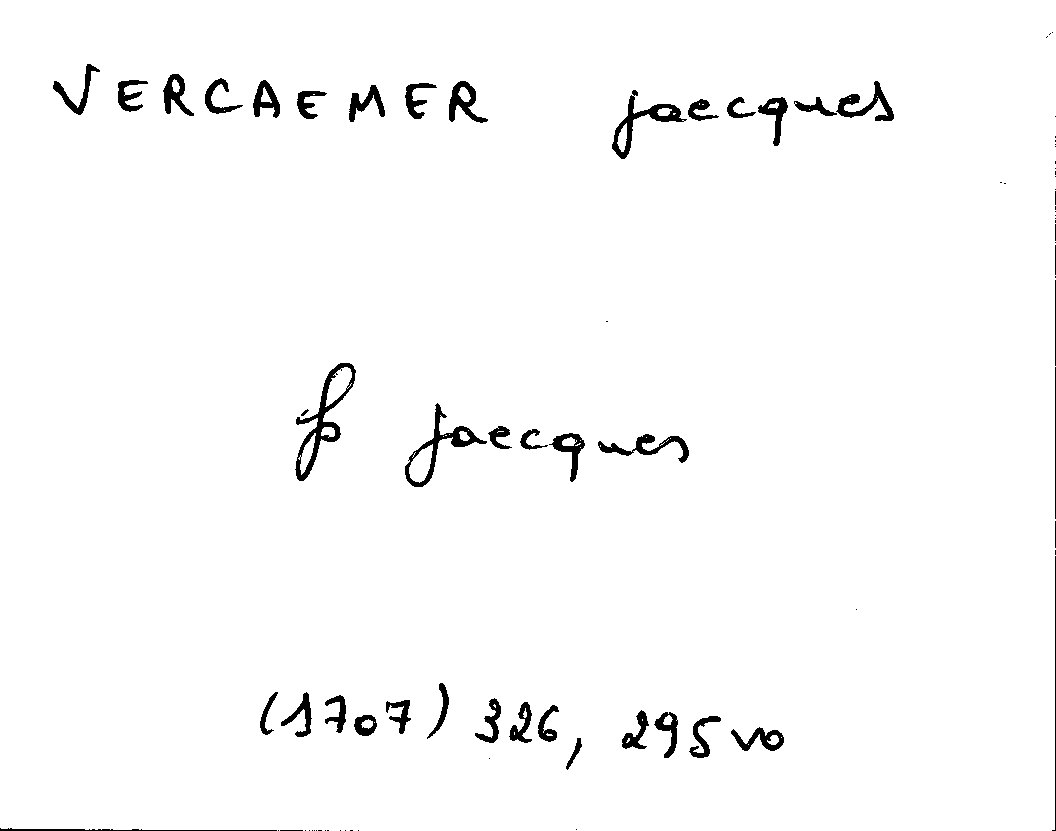 VERCAEMER jaecques
fs jaecques
(1707) 326, 295vo